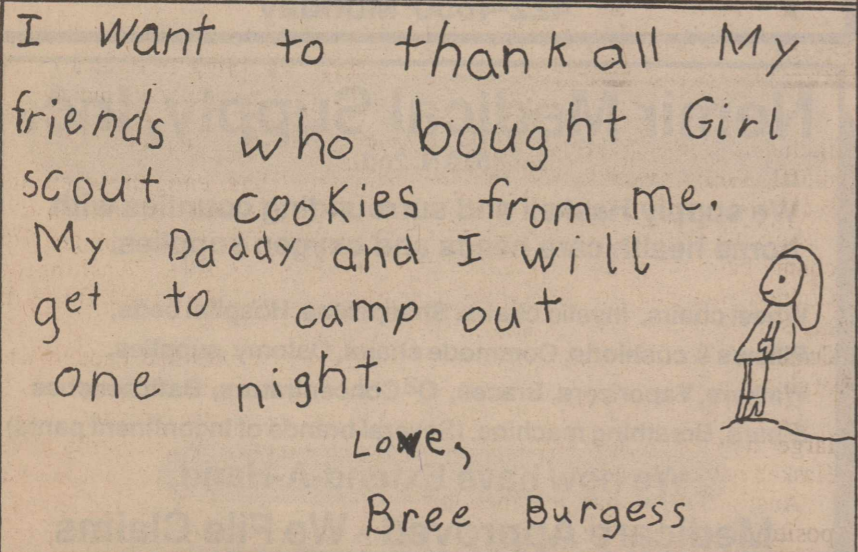 I want to thank all My
friends who bought Girl
scout cookies from me.
My Daddy and I will
get to camp out
one night
Love,
Bree Burgess